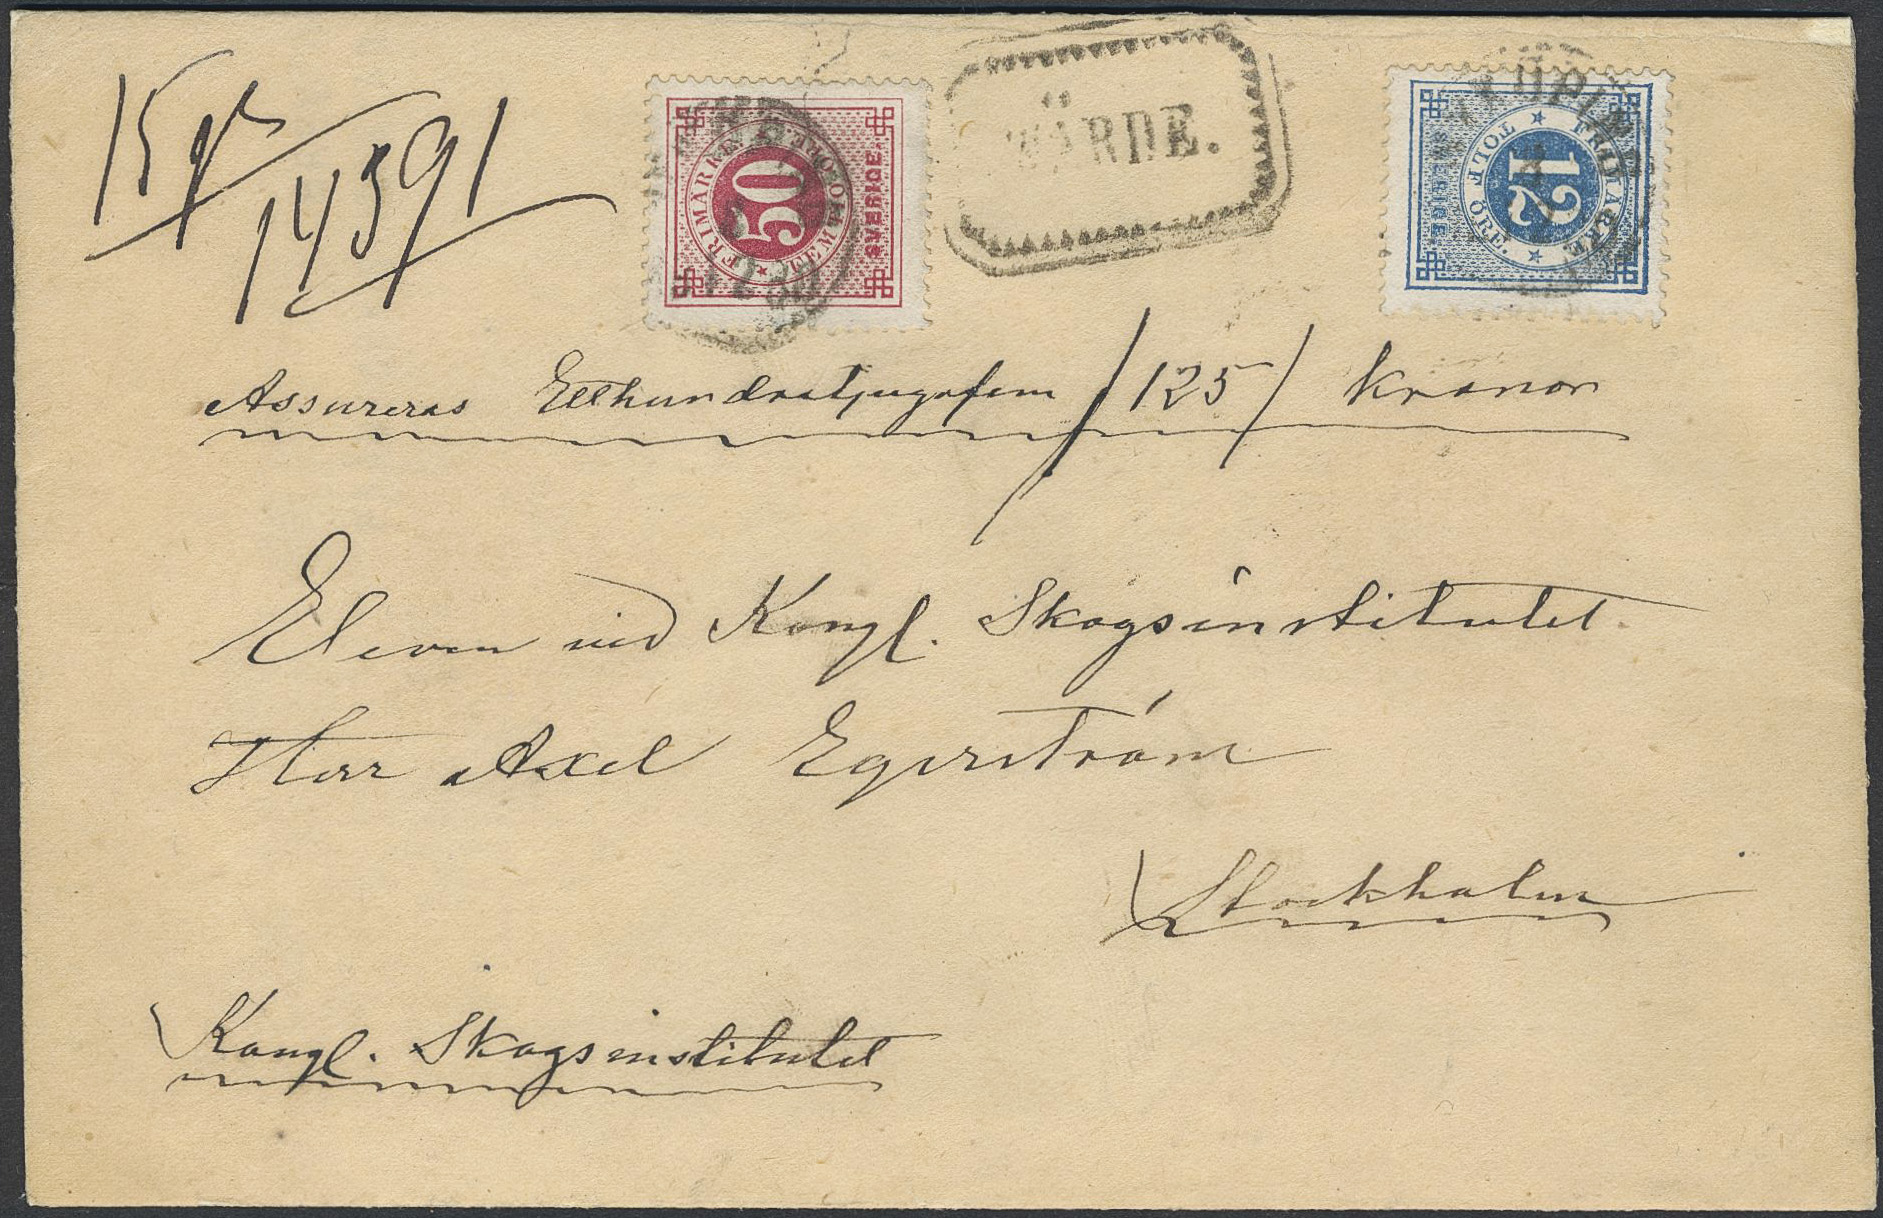 15 gr
14391
FRIMÄRKE FEMTIO ÖRE.
50
SVERIGE.
WÄRDE.
FRIMÄRKE
TOLF ÖRE.
12
SVERIGE.
Assureras Etthundratjugofem /125/ Kronor
Eleven vid Kongl. Skogsinstitutet.
Herr Axel Egerström
Stockholm
Kongl. Skogsinstitutet